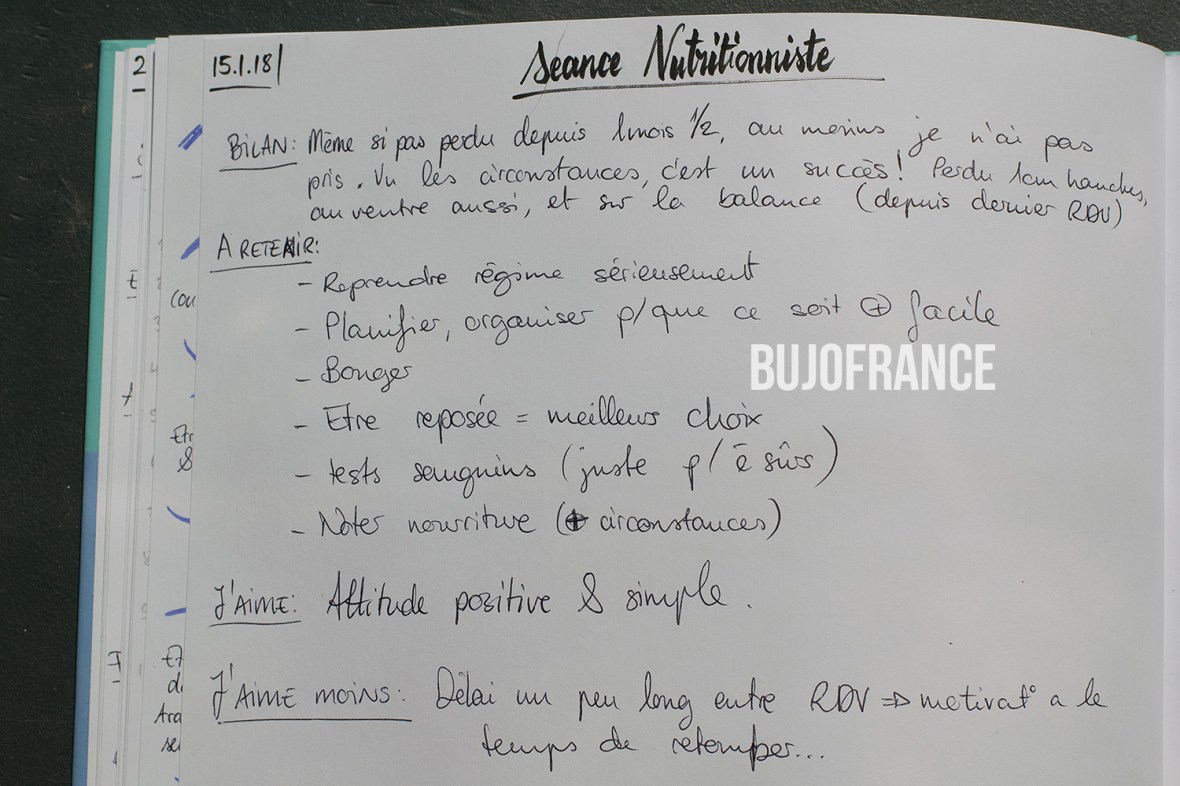 15.1.18
Séance Nutritionniste
BILAN: Même si pas perdu depuis 1mois 1/2, au moins je n'ai pas
pris. Vu les circonstances, c'est un succès! Perdu 1cm hanches,
au ventre aussi, et sur la balance (depuis dernier RDV)
A RETENIR:
- Reprendre régime sérieusement
- Planifier, organiser p/que ce soit ⊕ facile
- Bouger
- Etre reposée = meilleurs choix
- tests sanguins (juste p/ ê sûrs)
- Noter nourriture (+ circonstances)
J'AIME: Attitude positive & simple.
J'AIME MOINS: Délai un peu long entre RDV => motivat° a le
temps de retomber...
BUJOFRANCE
2
cou
Etr
&